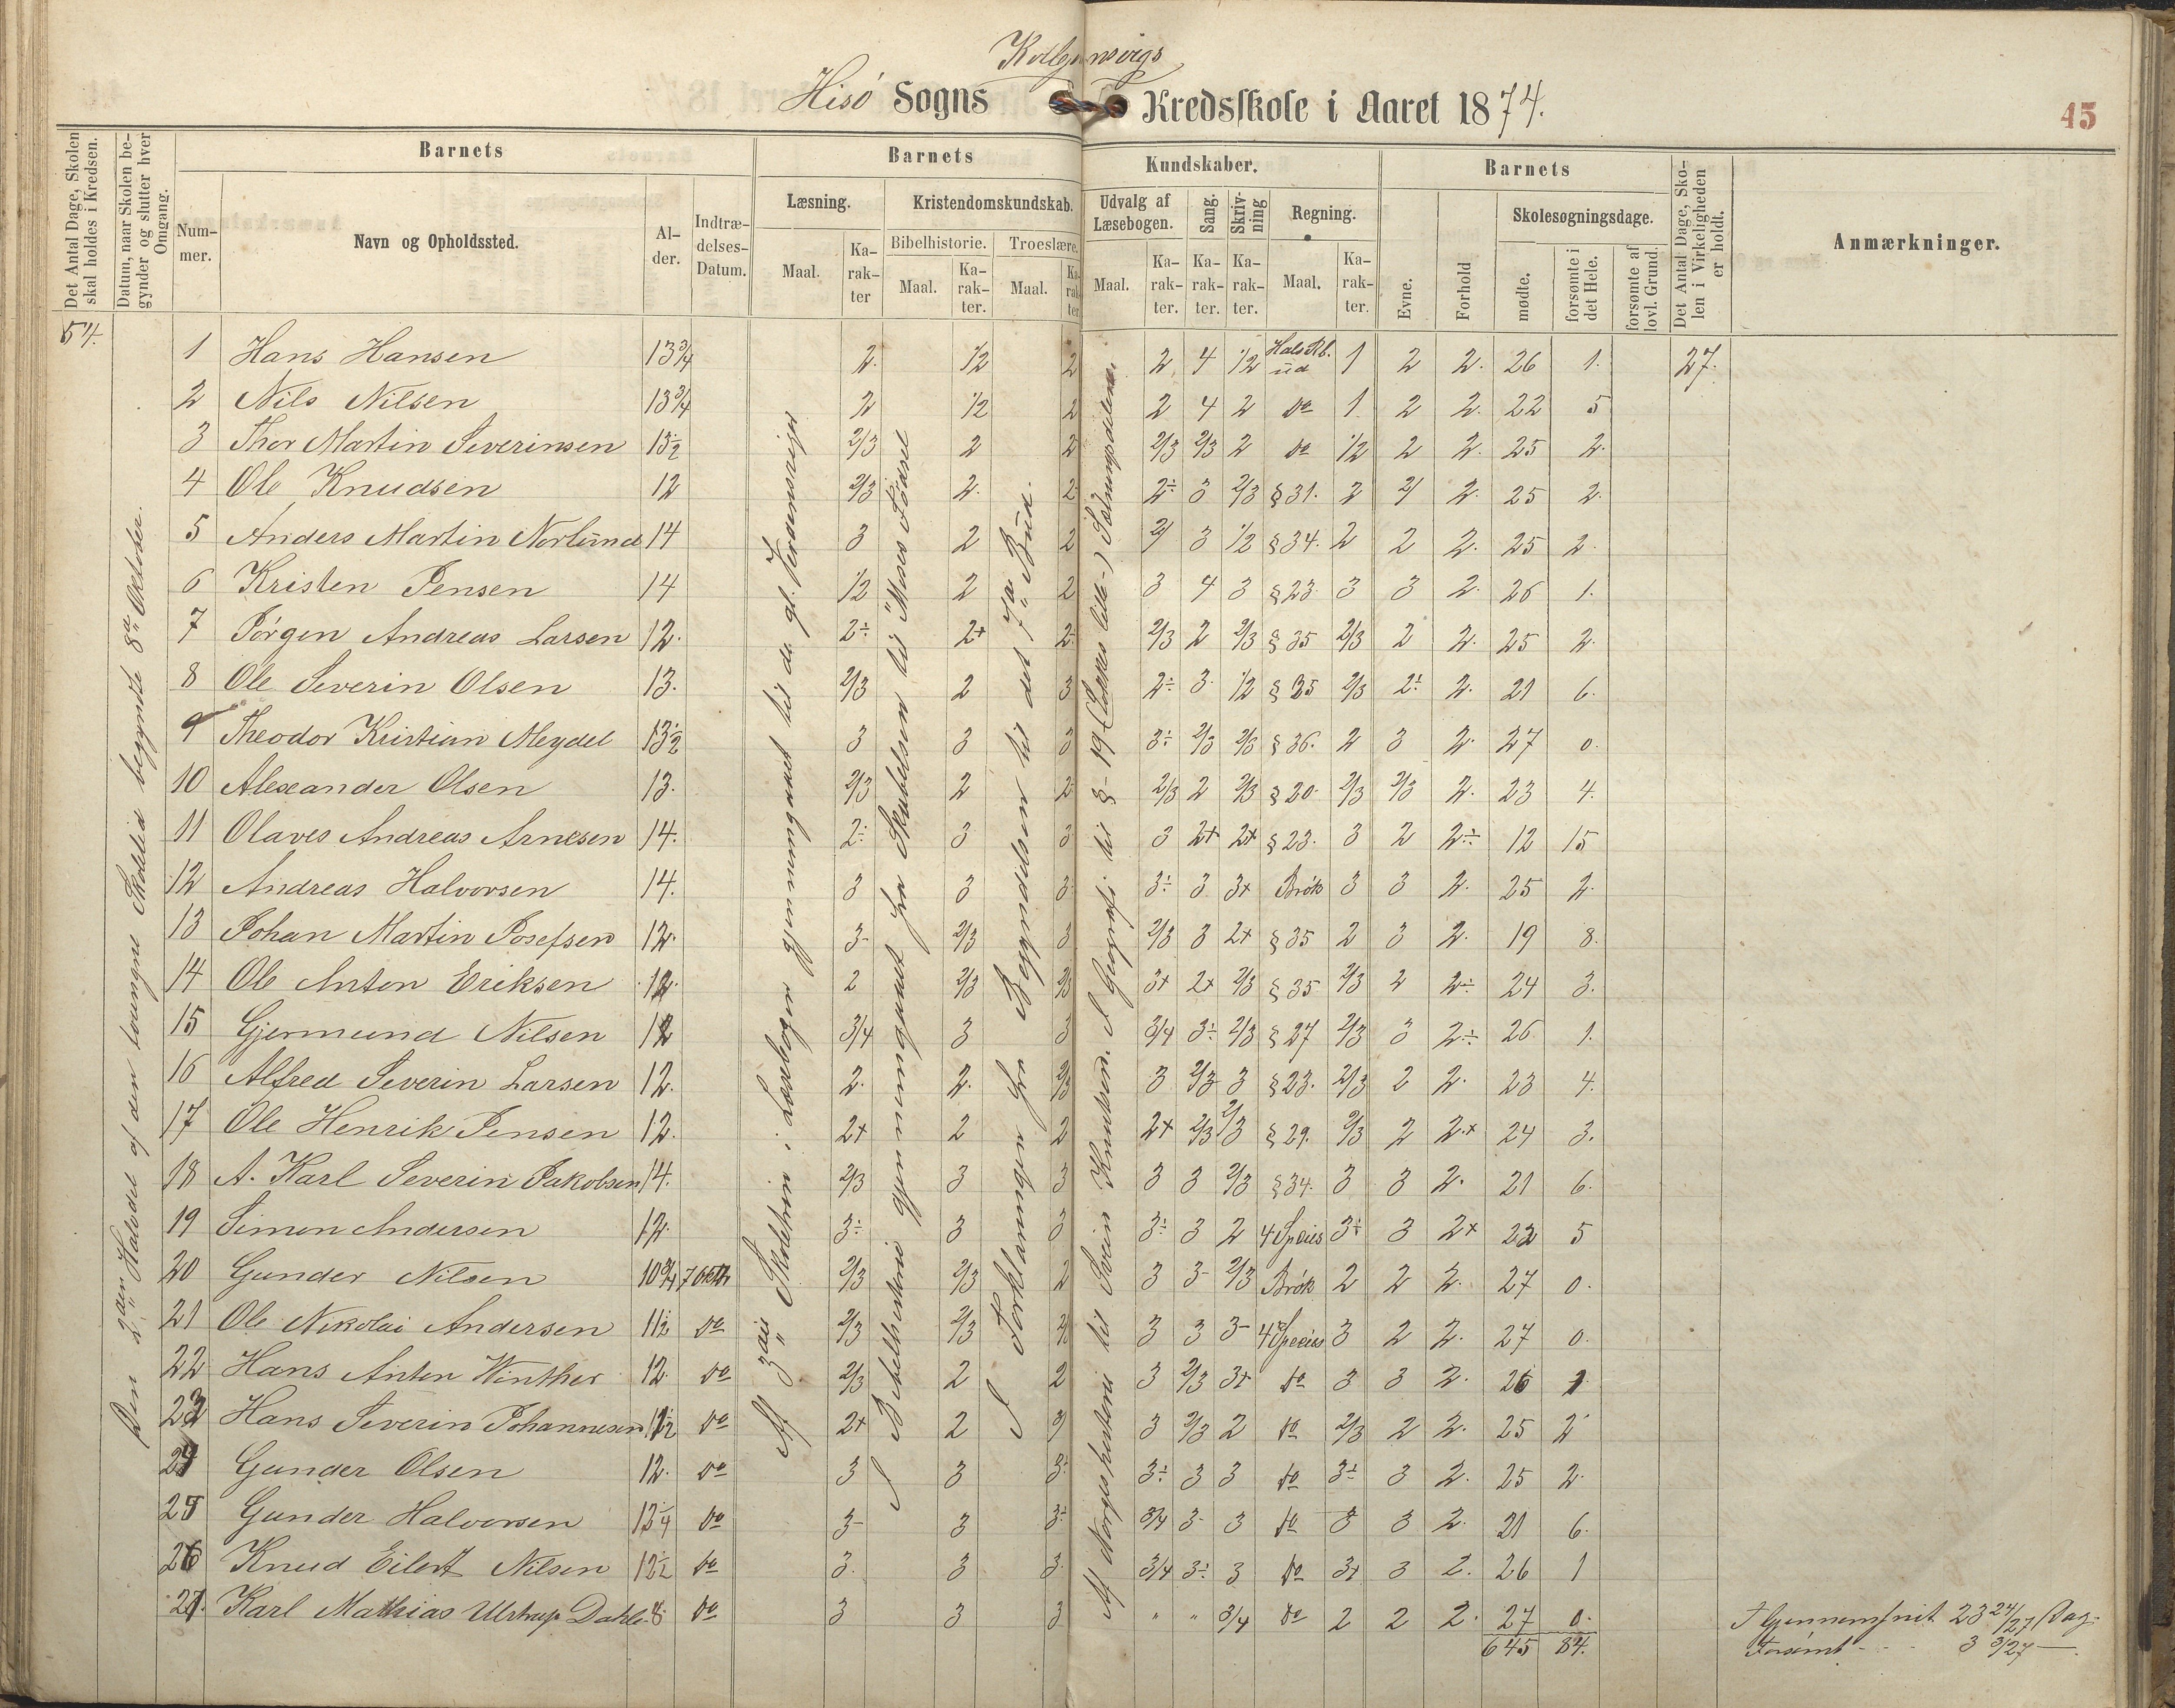 Kolbjørnsvigs
Hisö Sogns Kredsskole i Aaret 1874.
45
Det Antal Dage, Skolen skal holdes i Kredsen.
Datum, naar Skolen begynder og slutter hver Omgang.
Barnets
Nummer.
Navn og Opholdssted.
Alder.
Indtrædelses-Datum.
Barnets Kundskaber.
Læsning.
Maal.
Karakter
Kristendomskundskab.
Bibelhistorie.
Maal.
Karakter.
Troeslære.
Maal.
Karakter
Udvalg af Læsebogen.
Maal.
Karakter.
Sang.
Karakter.
Skrivning
Karakter.
Regning.
Maal.
Karakter.
Barnets
Evne.
Forhold
Skolesøgningsdage.
mødte.
forsømte i det Hele.
forsømte af lovl. Grund.
Det Antal Dage, Skolen i Virkeligheden er holdt.
Anmærkninger.
54.
Den 2den Halvdel af den tvungne Skoletid begyndte 8de October.
Af 3die Skoletrin i Læsebogen gjennemgaaet til de gl. Nordmænds
I Bibelhistorie gjennemgaaet fra Skabelsen til Moses Födsel
I Forklaringen fra Begyndelsen til det 7de Bud.
Af Norgeshistorie til Svein Knutssøn. I Geografi til § 19
1 Hans Hansen 13 3/4 2. 1/2 2 2 4 1/2 Hals Rb. ud 1 2 2. 26 1. 27.
2 Nils Nilsen 13 3/4 2 1/2 2 2 4 2 do 1 2 2. 22 5
3 Thor Martin Severinsen 13 1/2 2/3 2 2 2/3 2/3 2 do 1/2 2 2. 25 2.
4 Ole Knudsen 12 2/3 2. 2 2÷ 3 2/3 § 31. 2 2/ 2. 25 2.
5 Anders Martin Norlund 14 3 2 2 2/ 3 1/2 § 34. 2 2 2. 25 2.
6 Kristen Jensen 14 1/2 2 2 3 4 3 § 23. 3 3 2. 26 1.
7 Jörgen Andreas Larsen 12. 2÷ 2+ 2 2/3 2 2/3 § 35 2/3 2 2. 25 2.
8 Ole Severin Olsen 13. 2/3 2 3 2÷ 3. 1/2 § 35 2/3 2÷ 2. 21 6.
9 Theodor Kristian Meydel 13 1/2 3 3 3 3÷ 2/3 2/3 § 36. 2 3 2. 27 0.
10 Alexander Olsen 13. 2/3 2 2 2/3 2 2/3 § 20. 2/3 2/3 2. 23 4.
11 Olaves Andreas Arnesen 14. 2÷ 3 3 3 2+ 2+ § 23. 3 2 2÷ 12 15
12 Andreas Halvorsen 14. 3 3 3 3÷ 3 3+ Brök 3 3 2. 25 2.
13 Johan Martin Josefsen 12. 3- 2/3 3 2/3 3 2+ § 35 2 3 2. 19 8.
14 Ole Anton Eriksen 12. 2 2/3 2/3 3+ 2+ 2/3 § 35 2/3 2 2÷ 24 3.
15 Gjermund Nilsen 12 3/4 3 3 3/4 3÷ 2/3 § 27 2/3 3 2÷ 26 1.
16 Alfred Severin Larsen 12. 2. 2. 2/3 3 2/3 3 § 23. 2/3 2 2. 23 4.
17 Ole Henrik Jensen 12. 2+ 2 2 2+ 2/3 2/3 § 29. 2/3 2 2.+ 24 3.
18 A. Karl Severin Jakobsen 14. 2/3 3 3 3 3 2/3 § 34. 3 3 2. 21 6.
19 Simon Andersen 12. 3÷ 3 3 3÷ 3 2 4 Species 3÷ 3 2+ 22 5
20 Gunder Nilsen 10 3/4 7 Oktbr 2/3 2/3 2 3 3- 2/3 Brök 2 2 2. 27 0.
21 Ole Nikolai Andersen 11 1/2 do 2/3 2/3 2/3 3 3 3- 4 Species 3 2 2. 27 0.
22 Hans Anton Winther 12. do 2/3 2 2 3 2/3 3+ do 3 3 2. 26 1.
23 Hans Severin Johannesen 12 1/2 do 2+ 2 2/ 3 2/3 2 do 2/3 2 2. 25 2
24 Gunder Olsen 12. do 3 3 3÷ 3÷ 3 3 do 3÷ 3 2. 25 2.
25 Gunder Halvorsen 13 1/4 do 3- 3 3÷ 3/4 3- 3 do 3 3 2. 21 6.
26 Knud Eilert Nilsen 12 1/2 do 3. 3 3. 3/4 3÷ 3 do 3+ 3 2. 26 1
27. Karl Mathias Ulstrup Dahle 8. do 3 3 3 " " 3/4 do 2 2 2. 27 0.
645 84.
I Gjennemsnit 23 24/27 Dag.
Forsömt - - 3 3/27 —